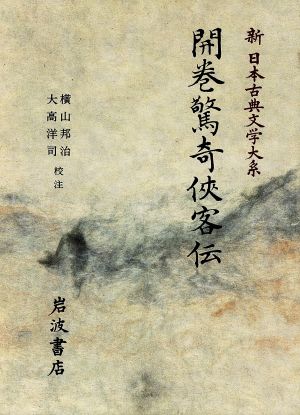 新 日本古典文学大系
開巻驚奇俠客伝
横山邦治
大高洋司
校注
岩波書店